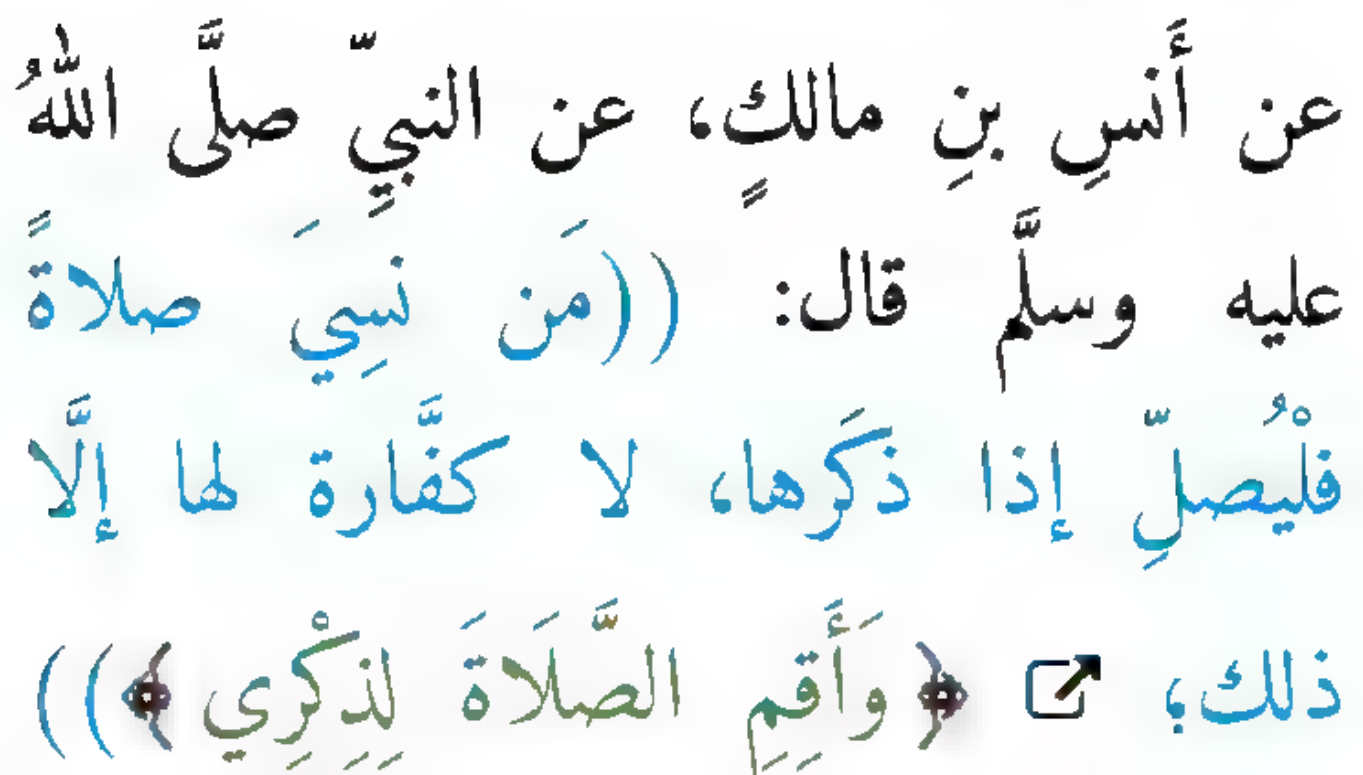 عن أَنسِ بنِ مالكٍ، عن النبيِّ صلَّى اللهُ
عليه وسلَّم قال: ((مَن نَسِيَ صلاةً
فلْيُصلِّ إذا ذكَرها، لا كفَّارة لها إلَّا
ذلك؛ ﴿ وَأَقِمِ الصَّلَاةَ لِذِكْرِي ﴾))